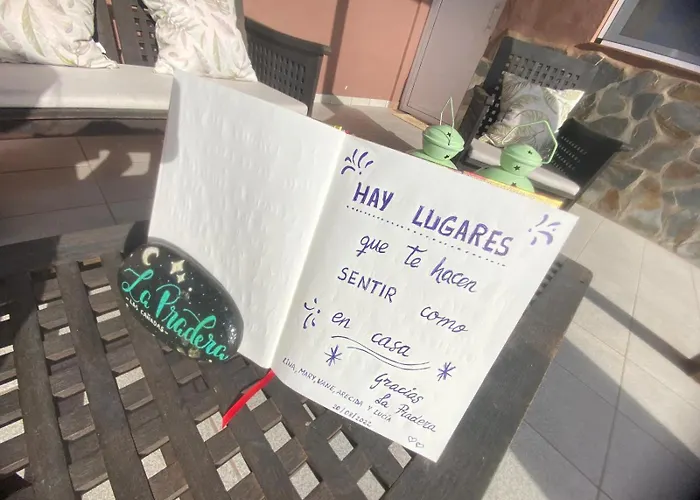 La Pradera
- LAS CAÑADAS -
HAY LUGARES
que te hacen
SENTIR como
en casa
Gracias
La Pradera
LINA, MARY, NANE, ARECIDA Y LUCÍA
20/02/2022